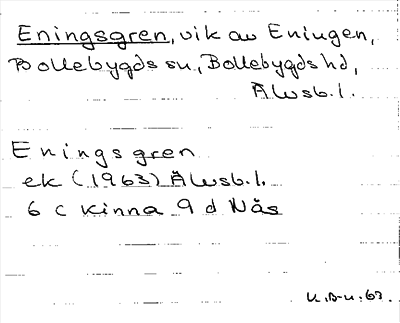 Eningsgren, vik av Eningen,
Bollebygds sn, Bollebygds hd,
Älvsb. l.
Enings gren
ek (1963) Älvsb. l.
6 c Kinna 9 d Nås